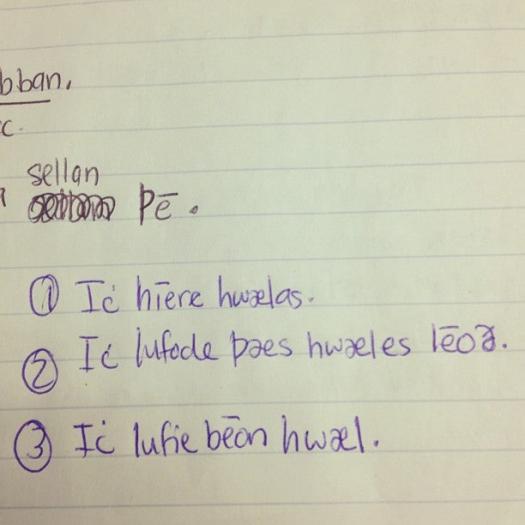 bban.
c.
sellan
þē.
① Iċ hīere hwælas.
② Iċ lufode þæs hwæles lēoð.
③ Iċ lufie bēon hwæl.